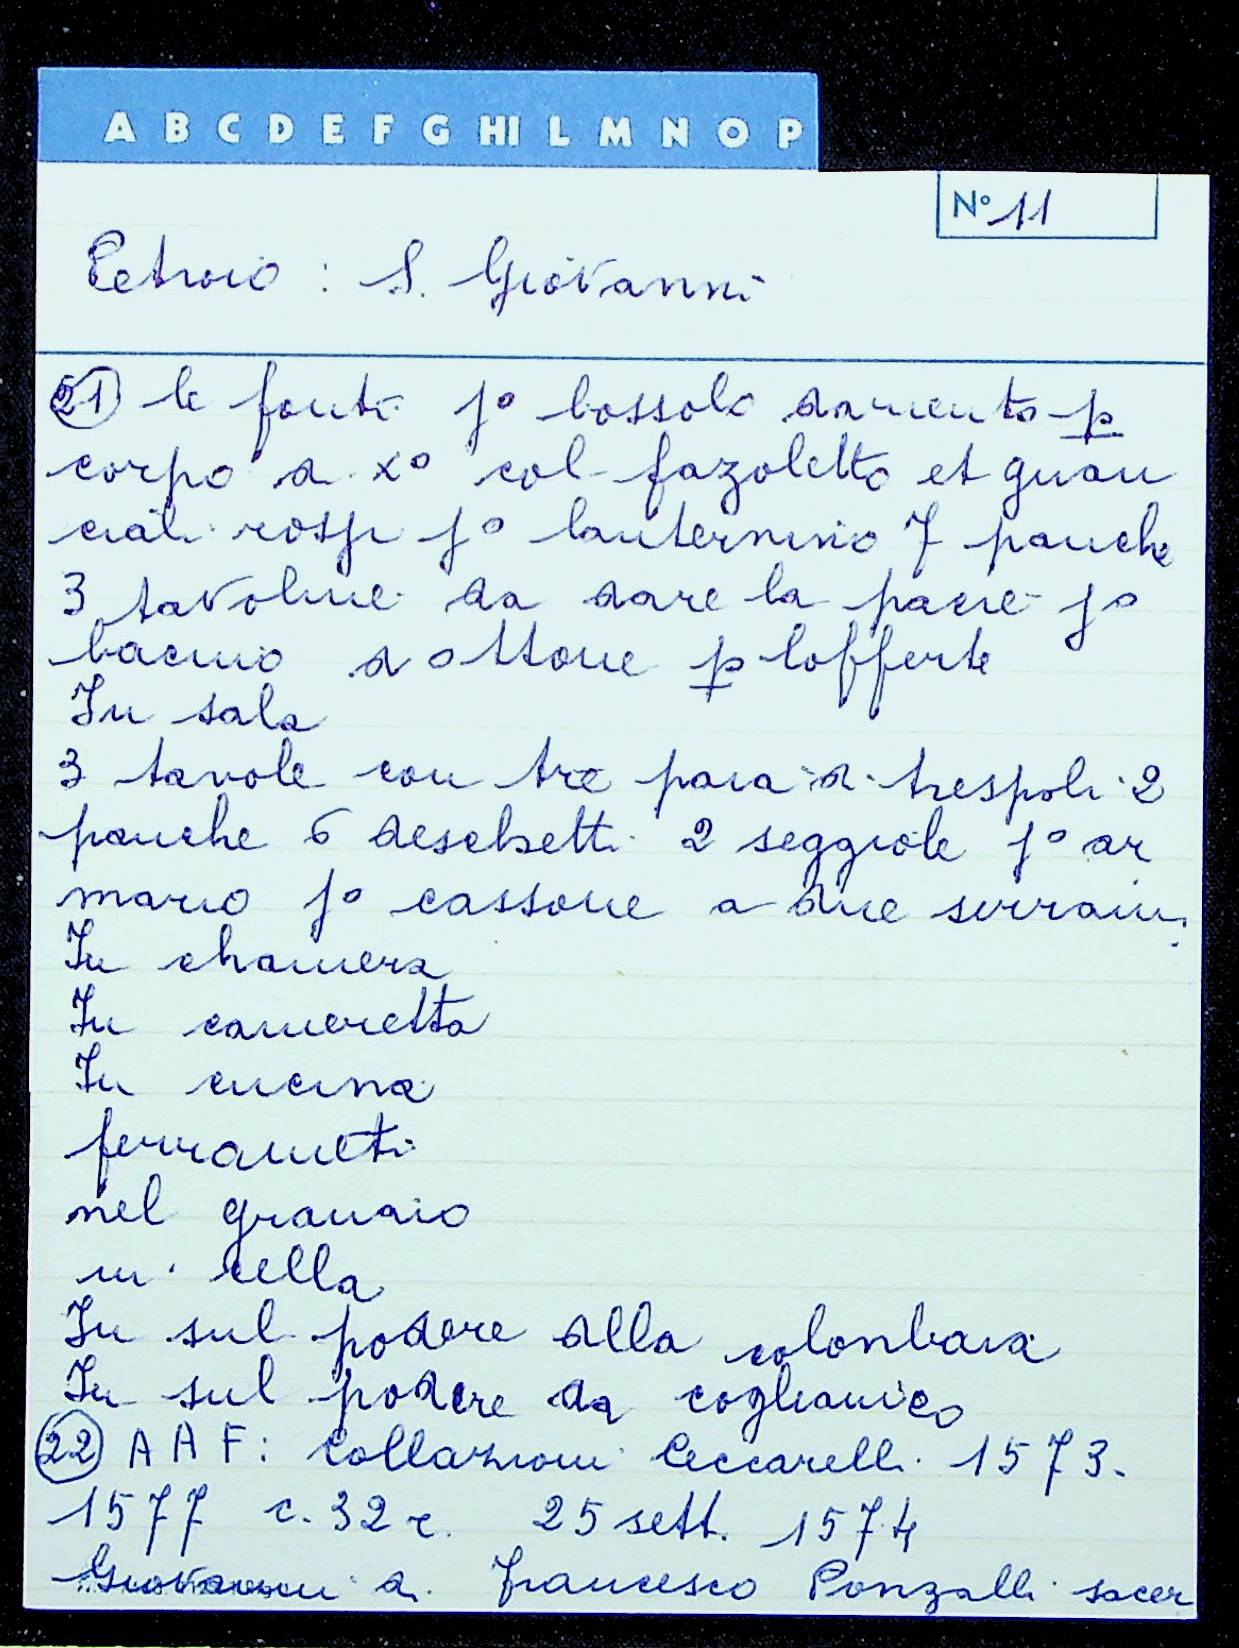 A B C D E F G HI L M N O P
N° 11
Petroio : S. Giovanni
21) le fonti jº bossolo dariento p
corpo di xº col fazoletto et guan
ciali rossi jº lanternino 7 panche
3 tavoline da dare la pace jº
bacino dottone p lofferte
In sala
3 tavole con tre paia di trespoli 2
panche 6 deschetti 2 seggiole jº ar
mario jº cassone a due serrami
In chamera
In cameretta
In cucina
ferrameti
nel granaio
in cella
In sul podere alla colonbaia
In sul podere da coglianico
22) A A F: Collazioni Ceccarelli 1573-
1577 c. 32 r. 25 sett. 1574
Giovanni di Francesco Ponzalli sacer